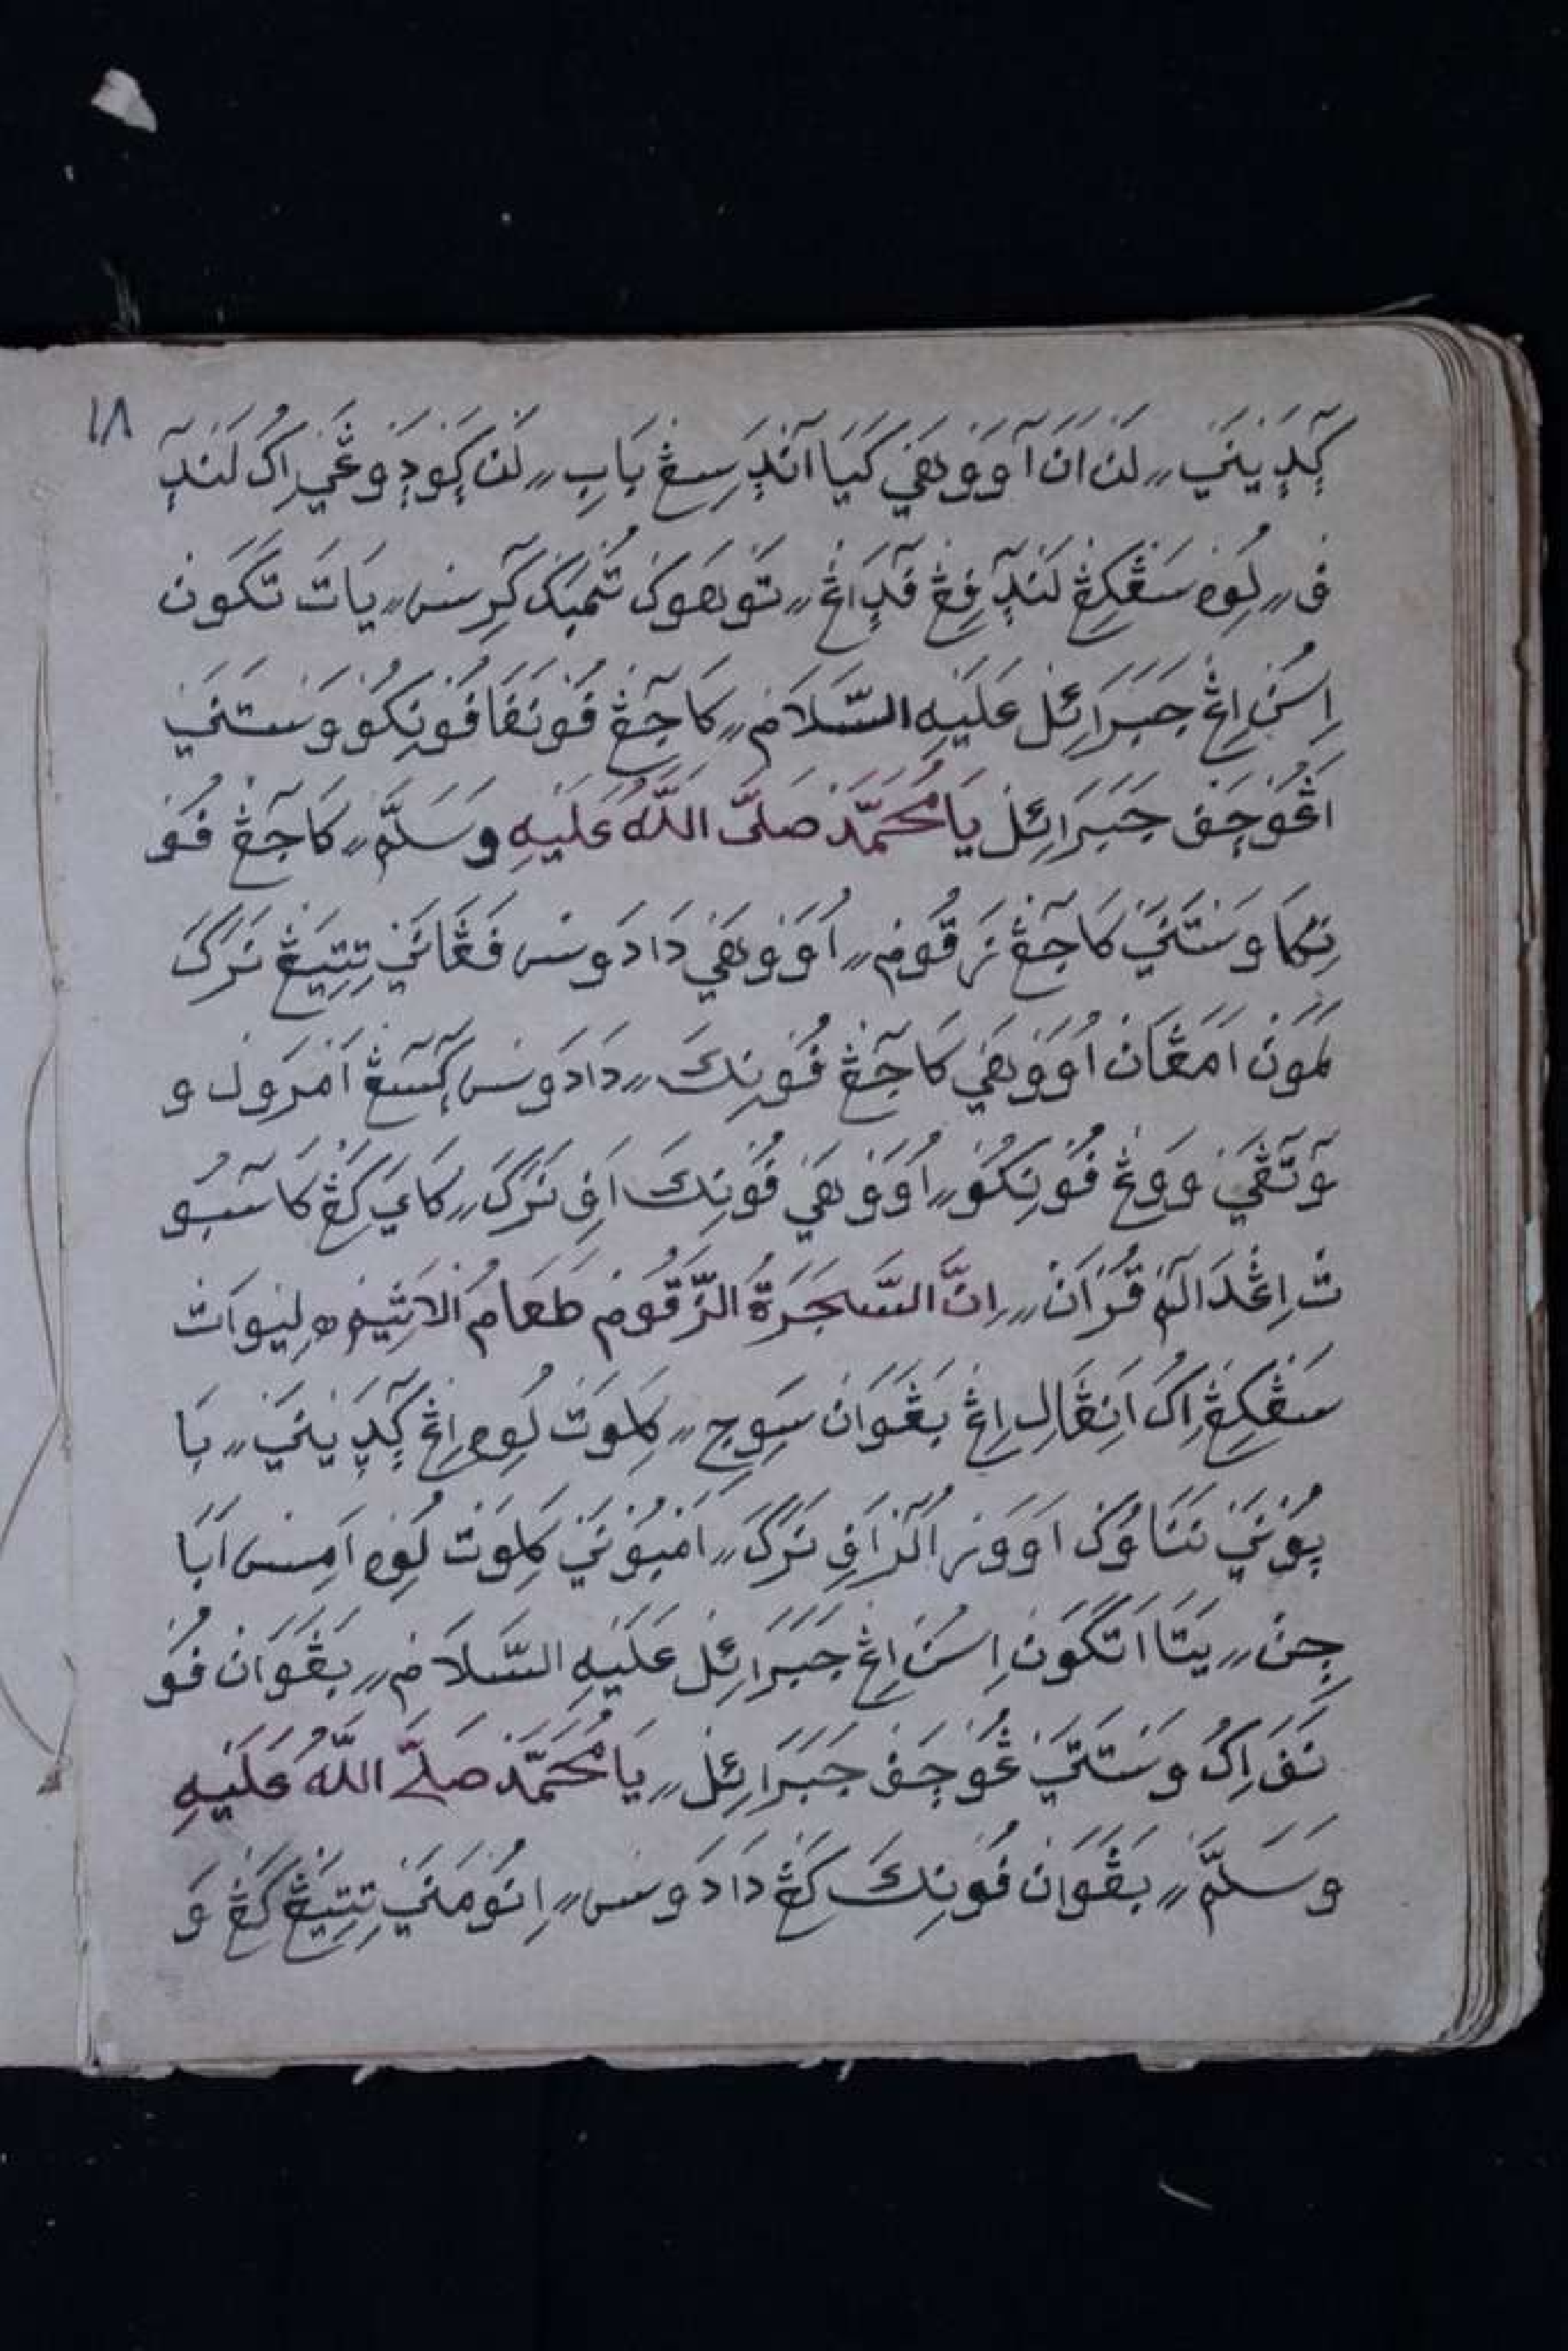 ١٨
كٓدٜيْنَيْ ۔۔ لَنْ اَنَ اَووْهَيْ كَيَا اَنْدٜ سِڠْ بَابِ ۔۔ لَنْ كٜوٜدٜوڠَيْ اِكُ لَنْدٜڤْ
۔۔ لُوِهْ سَڠْكِڠْ لَنْدٜڤِڠْ ڤٜدَاڠْ ۔۔ تَوْهَوْكُ تُمْبَكْ كٜرِسْ ۔۔ يَاتَ تَكَوْنْ
اِسُنْ اِڠْ جَبَرَائِلْ عَلَيْهِ السَّلَامْ ۔۔ كَاجٜڠْ ڤُوْنَڤَا ڤُوْنِكُوْ وَسْتَنَيْ
اَڠُوْجَڤْ جَبَرَائِلْ يَا مُحَمَّدْ صَلَّى اللَّهُ عَلَيْهِ وَسَلَّمْ ۔۔ كَاجٜڠْ ڤُوْ
نِكَا وَسْتَنَيْ كَاجٜڠْ زَقُّومْ ۔۔ اُوَوْهَيْ دَادَوْسْ ڤَڠَانَيْ تِتِيَڠْ نَرَكَ
لَمَوْنْ اَمَڠَانْ اُوَوْهَيْ كَاجٜڠْ ڤُوْنِكَ ۔۔ دَادَوْسْ كٜسٜڠْ اَمْرَوْلْ وٜ
وٜتٜڠَيْ وَوڠْ ڤُوْنِكُوْ ۔۔ اُوَوْهَيْ ڤُوْنِكَ اَڤِ نَرَكَ ۔۔ كَايَ كَڠْ كَاسٜبُوْ
تْ اِڠْدَالٜمْ قُرْاَنْ ۔۔ اِنَّ السَّجَرَةُ الزَّقُّوْمْ طَعَامُ الْاَثِيْمْ ه لِيْوَاتْ
سَڠْكِڠْ اِكُ اَنِڠَالِ اِڠْ بَڠَوَانْ سَوِجِ ۔۔ كَلَوَتْ لُوِهْ اِڠْ كٜدٜيْنَيْ ۔۔ بَا
يُوْنَيْ نَنَاوُكْ اَوَوْرْ اَلَنْ اَڤِ نَرَكَ ۔۔ اَمْبُوْنَيْ كَلَوَتْ لُوِهْ اَمِسْ اَبَا
چِنْ ۔۔ يَتَا اَتَكَوْنْ اِسُنْ اِڠْ جَبَرَائِلْ عَلَيْهِ السَّلَامْ ۔۔ بَڠَوَانْ ڤُوْ
نَڤَ اِكُ وَسْتَنَيْ ڠُوْجَڤْ جَبَرَائِلْ ۔۔ يَا مُحَمَّدْ صَلَّى اللَّهُ عَلَيْهِ
وَسَلَّمْ ۔۔ بَڠَوَانْ ڤُوْنِكَ كَڠْ دَادَوْسْ ۔۔ اِنُوْمَنَيْ تِتِيَڠْ كَڠْ وَ